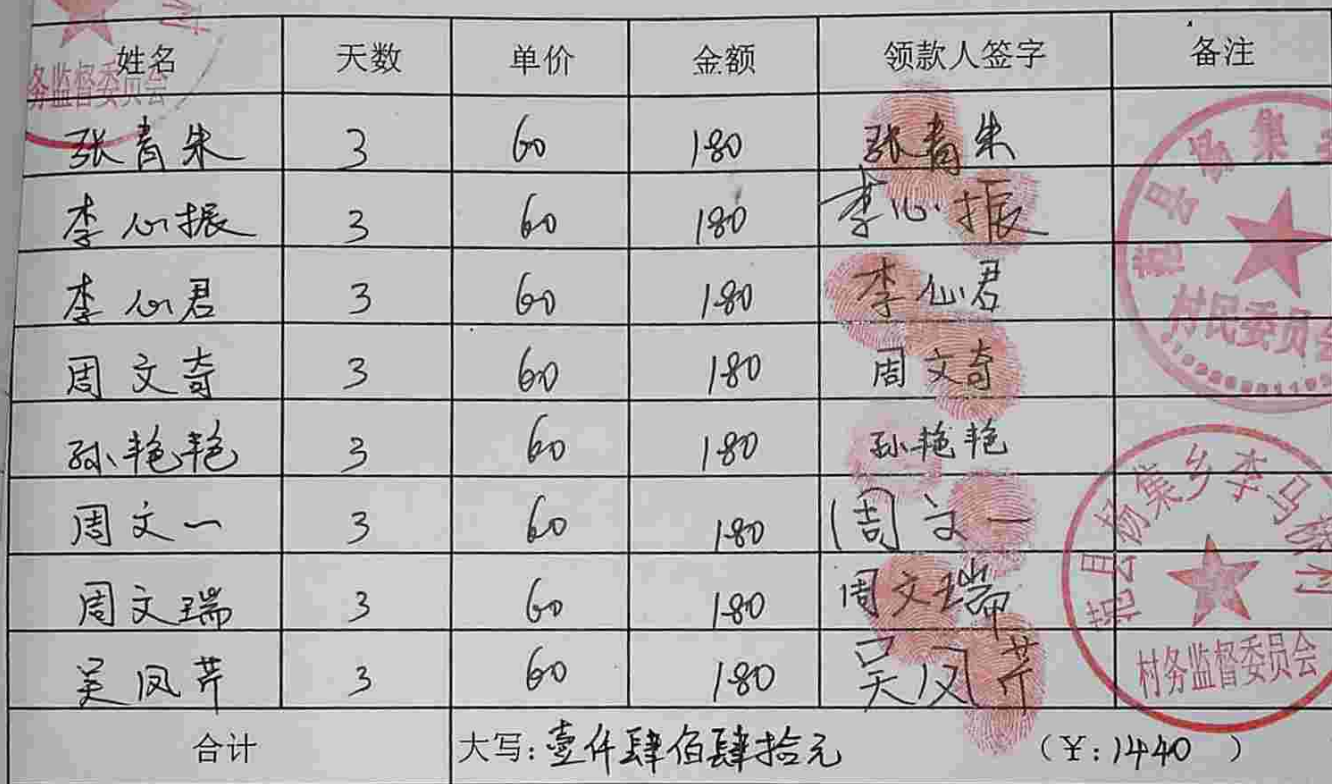 姓名 天数 单价 金额 领款人签字 备注
张青朱 3 60 180 张青朱
李心振 3 60 180 李心振
李心君 3 60 180 李心君
周文奇 3 60 180 周文奇
孙艳艳 3 60 180 孙艳艳
周文一 3 60 180 周文一
周文瑞 3 60 180 周文瑞
吴凤芹 3 60 180 吴凤芹
合计 大写:壹仟肆佰肆拾元 (¥:1440 )
务监督委员会
县杨集
村民委员会
县杨集乡李马桥村
村务监督委员会